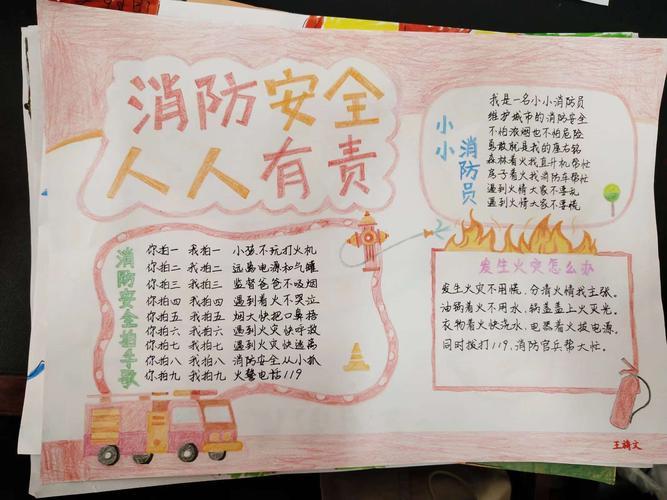 消防安全
人人有责
小小消防员
我是一名小小消防员
维护城市的消防安全
不怕浓烟也不怕危险
勇敢就是我的座右铭
森林着火我直升机帮忙
房子着火我消防车帮忙
遇到火情大家不要乱
遇到火情大家不要慌
消防安全拍手歌
你拍一 我拍一 小孩不玩打火机
你拍二 我拍二 远离电源和气罐
你拍三 我拍三 监督爸爸不吸烟
你拍四 我拍四 遇到着火不哭泣
你拍五 我拍五 烟大快把口鼻捂
你拍六 我拍六 遇到火灾快呼救
你拍七 我拍七 遇到火灾快逃离
你拍八 我拍八 消防安全从小扒
你拍九 我拍九 火警电话119
发生火灾怎么办
发生火灾不用慌，分清火情我主张。
油锅着火不用水，锅盖盖上火灭光。
衣物着火快浇水，电器着火拔电源。
同时拨打119，消防官兵帮大忙。